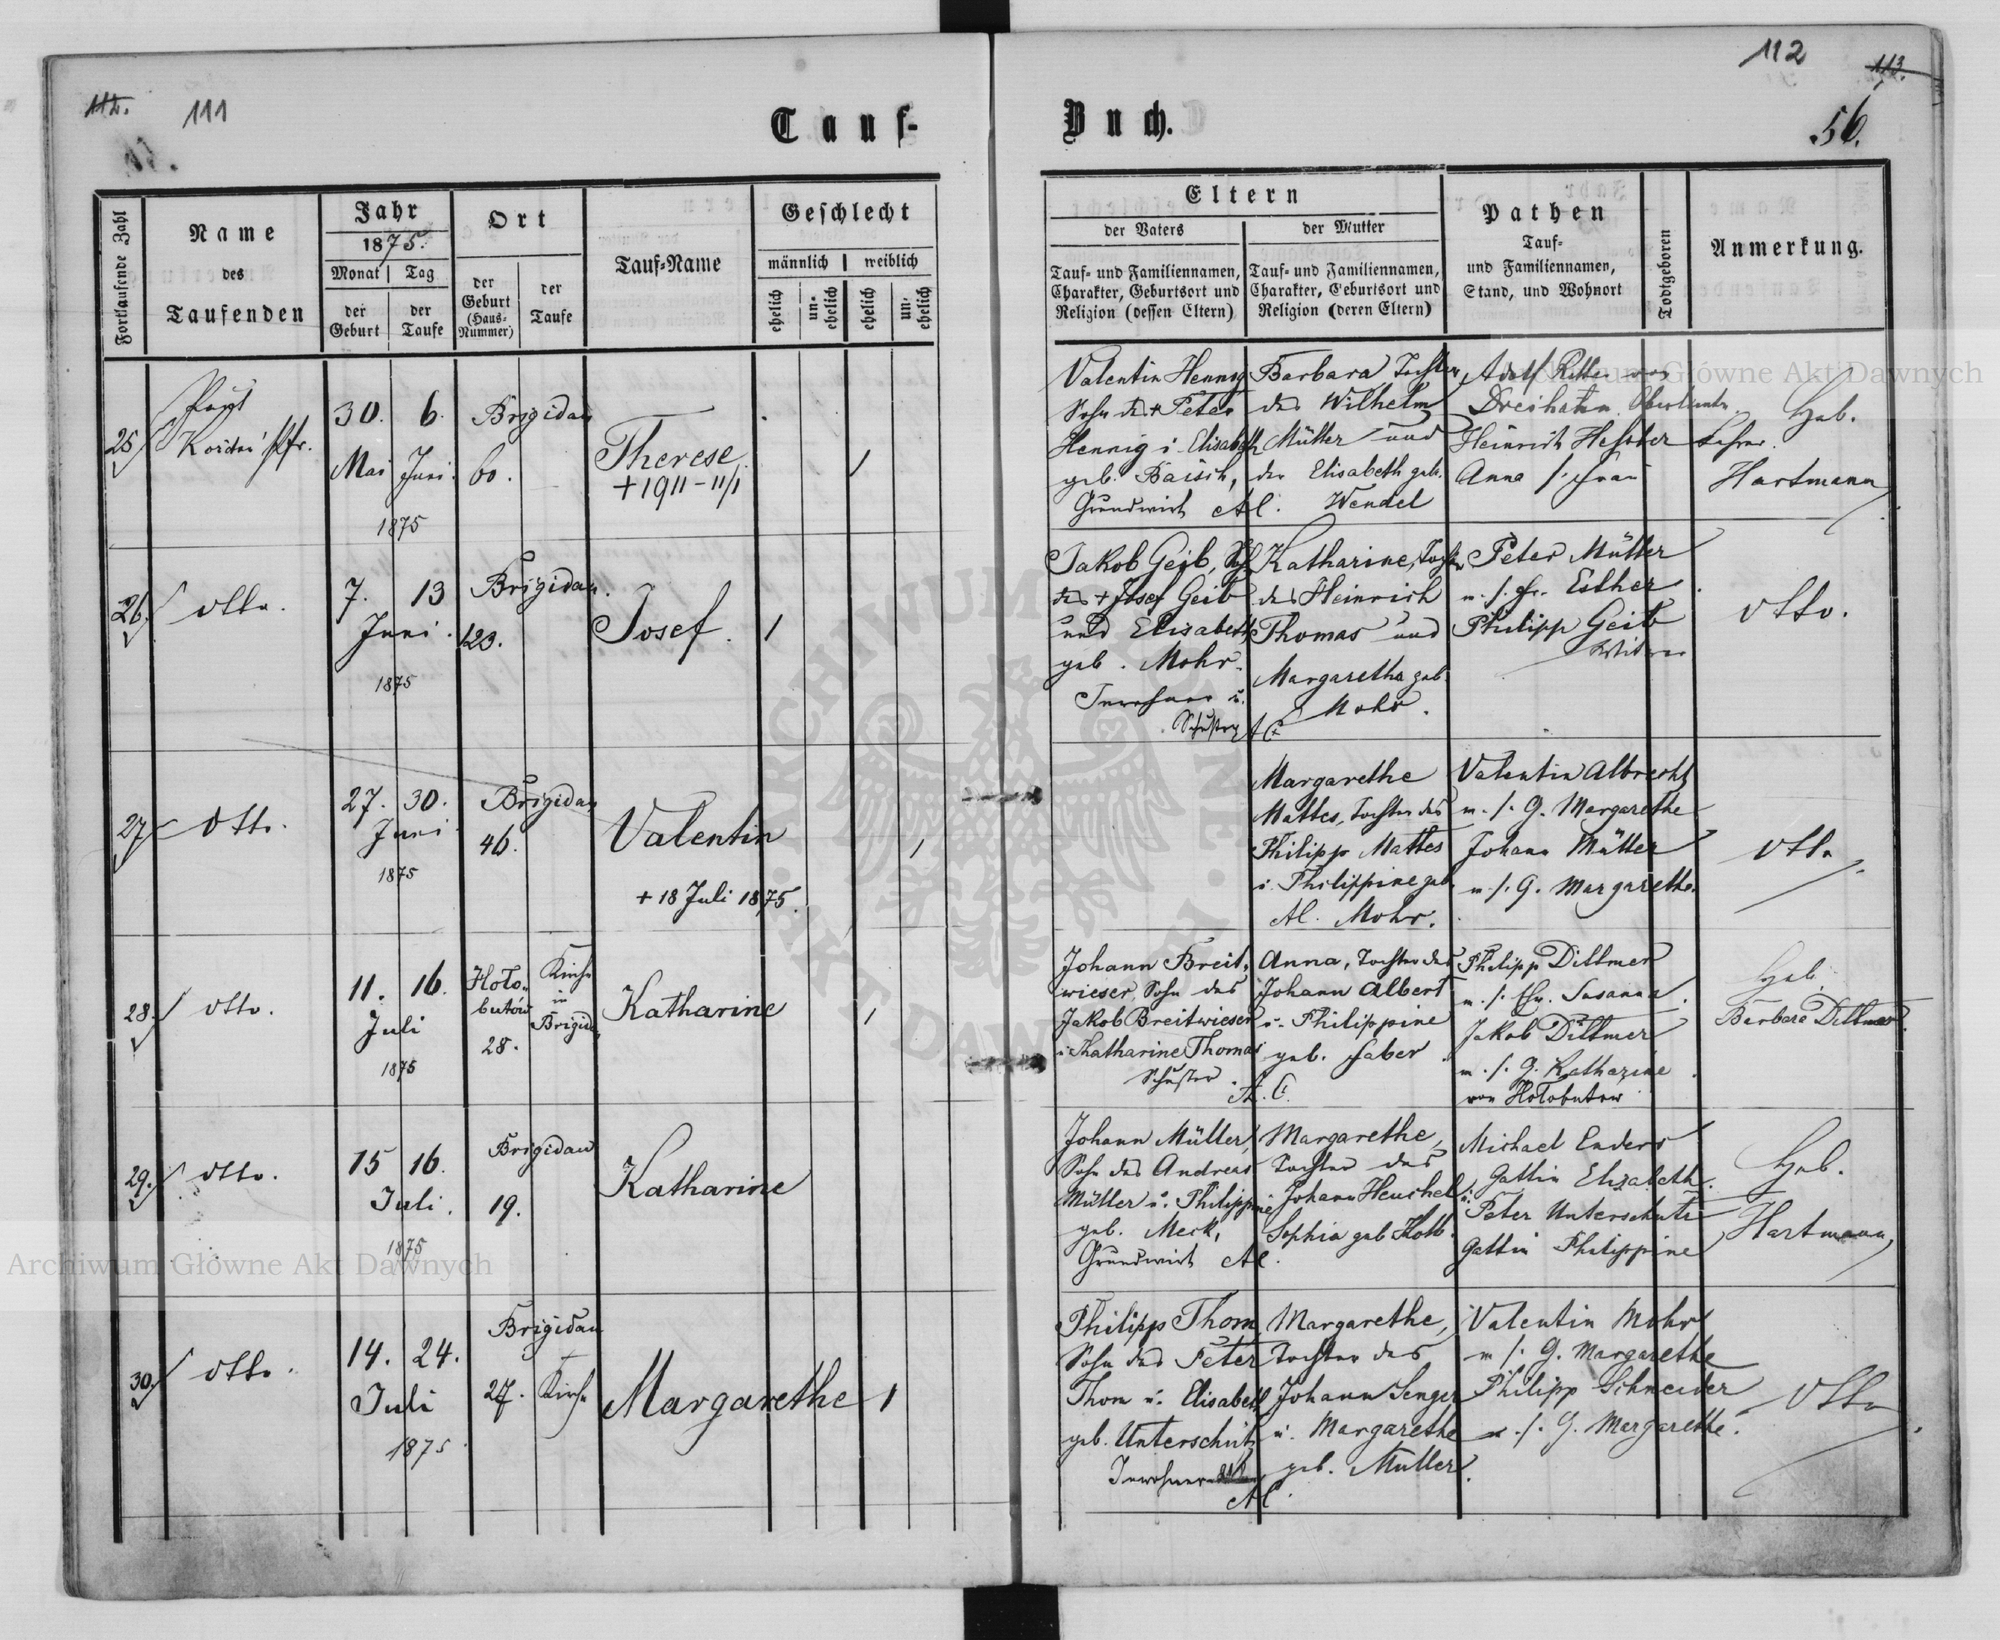 112.
111
Tauf-
Buch.
112
113.
56.
Fortlaufende Zahl
Name
des
Taufenden
Jahr
1875.
Monat
Tag
der
Geburt
der
Taufe
Ort
der
Geburt
(Haus-
Nummer)
der
Taufe
Tauf-Name
Geschlecht
männlich
weiblich
ehelich
un-
ehelich
ehelich
un-
ehelich
Eltern
der Vaters
der Mutter
Tauf- und Familiennamen,
Charakter, Geburtsort und
Religion (dessen Eltern)
Tauf- und Familiennamen,
Charakter, Geburtsort und
Religion (deren Eltern)
Pathen
Tauf-
und Familiennamen,
Stand, und Wohnort
Todtgeboren
Anmerkung.
25
Pfr.
30. 6.
Mai Juni.
1875
Brigidau
60.
Therese
+ 1911 - 11/1
1
Valentin Hennig
Sohn des + Peter
Hennig i Elisabeth
geb. Baisch,
Grundwirt A C.
Barbara Tochter
des Wilhelm
Müller und
der Elisabeth geb.
Wendel
Adolf
Heinrich
Lehrer.
Anna s. Frau
Heb.
Hartmann
26.
dtto.
7. 13
Juni.
1875
Brigidau.
123.
Josef.
1
Jakob Geib,
des + Josef Geib
und Elisabeth
geb. Mohr.
Inwohner u.
Schuster A C
Katharine, Tochter
des Heinrich
Thomas und
Margaretha geb.
Mohr.
Peter Müller
u. s. Fr. Esther
Philipp Geib
Witwer
dtto.
27
dtto.
27. 30.
Juni
1875
Brigidau
46.
Valentin
+ 18 Juli 1875.
1
Margarethe
Mattes, Tochter des
Philipp Mattes
i. Philippine geb.
AC. Mohr.
Valentin Albrecht
u. s. G. Margarethe
Johann Müller
u. s. G. Margarethe.
dtto
28.
dtto.
11. 16.
Juli
1875
Holo-
butów
28.
Kirche
in
Brigidau
Katharine
1
Johann Breit-
wieser, Sohn des
Jakob Breitwieser
i. Katharine Thomas
Schuster. A. C.
Anna, Tochter des
Johann Albert
u. Philippine
geb. Faber.
Philipp Dittmer
u. s. Ehr. Susanna.
Jakob Dittmer
u. s. G. Katharine.
von Holobutow
Heb.
Barbara Dittmer.
29.
dtto.
15 16.
Juli.
1875
Brigidau
19.
Katharine
Johann Müller,
Sohn des Andreas
Müller u. Philippine
geb. Merk,
Grundwirt A C.
Margarethe,
Tochter des
Johann Heuchel u.
Sophia geb Kolb.
Michael Enders
Gattin Elisabeth.
Peter Unterschütz
Gattin Philippine
Heb.
Hartmann
30.
dtto.
14. 24.
Juli
1875
Brigidau
27. Kirche
Margarethe
1
Philipp Thom
Sohn des Peter
Thom u. Elisabeth
geb. Unterschütz
Inwohner
A C.
Margarethe,
Tochter des
Johann Senger
u. Margarethe
geb. Müller.
Valentin Mohr
u s. G. Margarethe
Philipp Schneider
u. s. G. Margarethe.
dtto
Archiwum Główne Akt Dawnych
Archiwum Główne Akt Dawnych